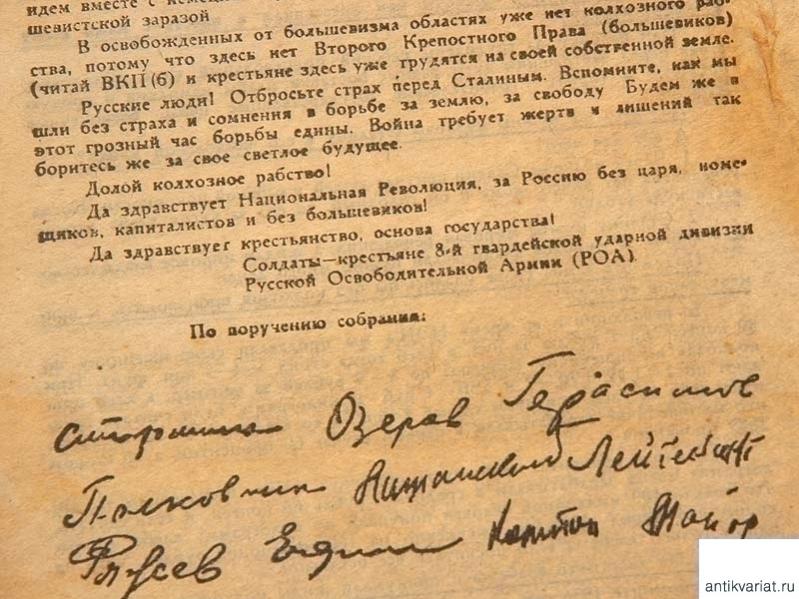 идем вместе с
шевистской заразой
В освобожденных от большевизма областях уже нет колхозного раб-
ства, потому что здесь нет Второго Крепостного Права (большевиков)
(читай ВКП(б) и крестьяне здесь уже трудятся на своей собственной земле.
Русские люди! Отбросьте страх перед Сталиным. Вспомните, как мы
шли без страха и сомнения в борьбе за землю, за свободу Будем же в
этот грозный час борьбы едины. Война требует жертв и лишений так
боритесь же за свое светлое будущее.
Долой колхозное рабство!
Да здравствует Национальная Революция, за Россию без царя, поме-
щиков, капиталистов и без большевиков!
Да здравствует крестьянство, основа государства!
Солдаты—крестьяне 8-й гвардейской ударной дивизии
Русской Освободительной Армии (РОА)
По поручению собрания:
Озеров Герасимов
Полковник Лейтенант
Майор
antikvariat.ru